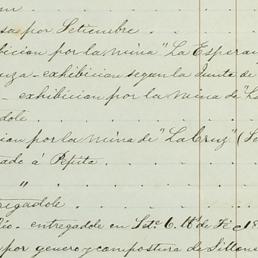 sa por Setiembre
bicion por la mina "La Esperan
nza - exhibicion segun la Junta de
- exhibicion por la mina de "L
dole
cion por la mina de "La Cruz" (So
tado a Pepita
"
tregadole
lio - entregadole en
por genero y compostura de